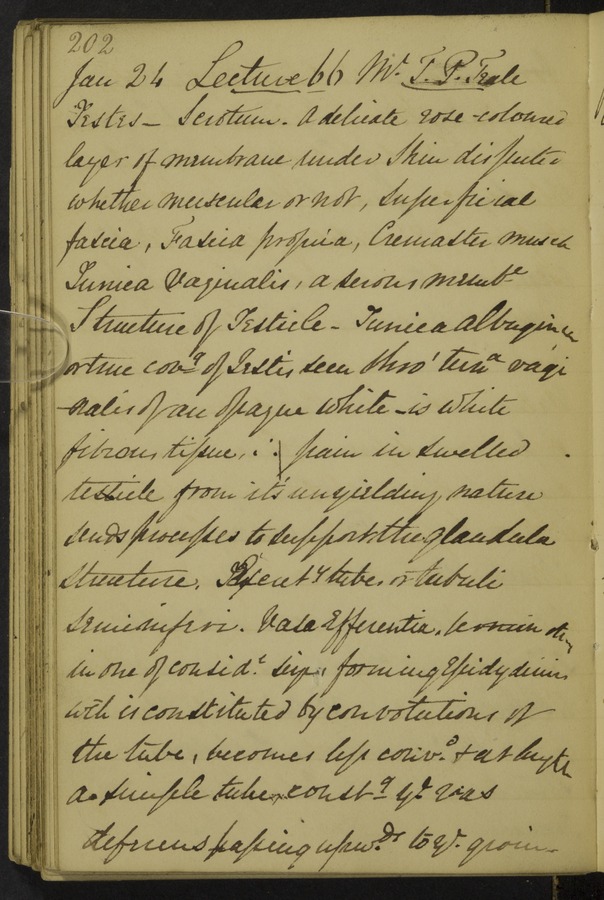 202
Jan 24 Lecture 66 Mr. T. P. Teale
Testes - Scrotum. A delicate rose-coloured
layer of membrane under Skin disputed
whether muscular or not, Superficial
fascia, Fascia propria, Cremaster muscle
Tunica Vaginalis, a serous membe
Structure of Testicle - Tunica Albuginea
or true covg of Testis seen thro' tuna vagi
nalis of an opaque white - is white
fibrous tissue, ∴ pain in swelled
testicle from it's unyielding nature
sends processes to support the glandula
structure. tubes or tubuli
seminiferi. Vasa Efferentia,
in one of consid. size, forming Epidydimis
wch is constituted by convolutions of
the tube, becomes less conv.d & at length
a simple tube constg ye vas
deferens passing upwds to ye groin -